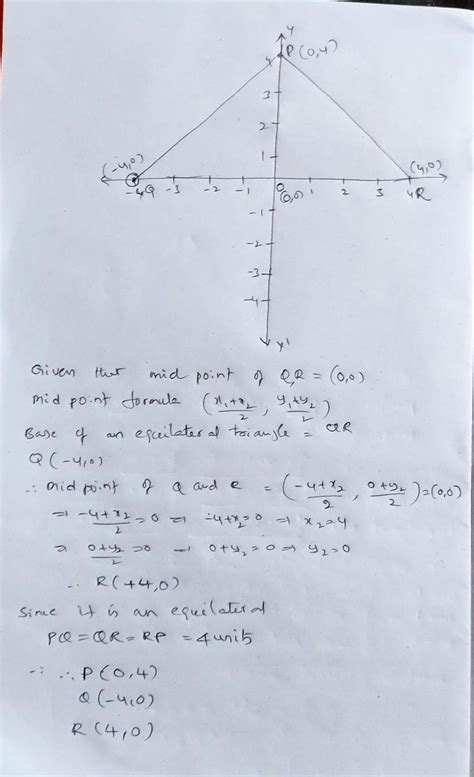 Y
P(0,4)
4
3
2
1
(-4,0)
(4,0)
-4Q -3 -2 -1 0 1 2 3 4R
(0,0)
-1
-2
-3
-4
Y'
Given that mid point of QR = (0,0)
mid point formula (x₁+x₂/2, y₁+y₂/2)
Base of an equilateral triangle = QR
Q(-4,0)
∴ mid point of Q and R = (-4+x₂/2, 0+y₂/2) = (0,0)
⇒ -4+x₂/2 = 0 ⇒ -4+x₂=0 ⇒ x₂=4
⇒ 0+y₂/2 = 0 ⇒ 0+y₂=0 ⇒ y₂=0
∴ R(+4,0)
Since it is an equilateral
PQ = QR = RP = 4 units
∴ ∴ P(0,4)
Q(-4,0)
R(4,0)